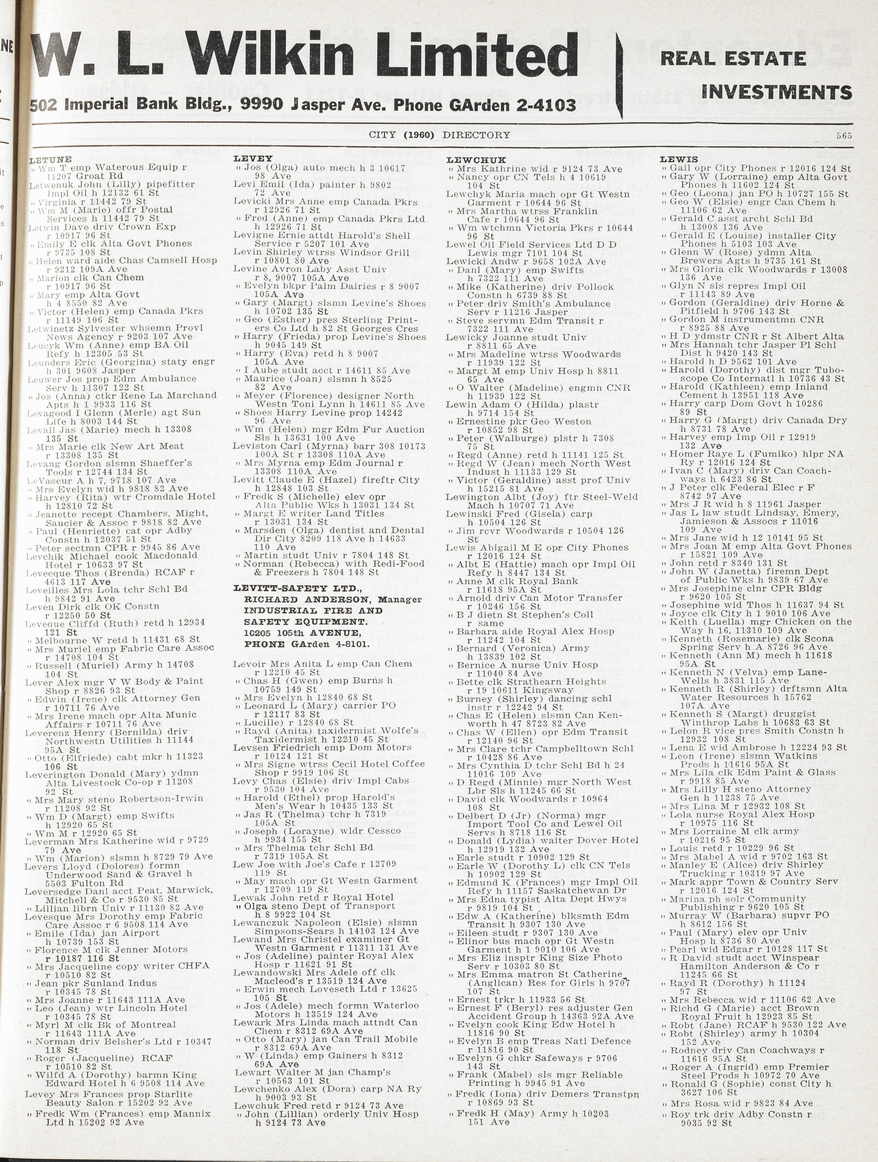 W. L. Wilkin Limited
502 Imperial Bank Bldg., 9990 Jasper Ave. Phone GArden 2-4103
REAL ESTATE
INVESTMENTS
CITY (1960) DIRECTORY
565
LETUNE
" Wm T emp Waterous Equip r
11207 Groat Rd
Letwenuk John (Lilly) pipefitter
Impl Oil h 12132 61 St
" Virginia r 11442 79 St
" Wm M (Marie) offr Postal
Services h 11442 79 St
Letwin Dave driv Crown Exp
r 10917 96 St
" Emily E clk Alta Govt Phones
r 9735 108 St
" Helen ward aide Chas Camsell Hosp
r 9212 109A Ave
" Marion clk Can Chem
r 10917 96 St
" Mary emp Alta Govt
h 4 8550 82 Ave
" Victor (Helen) emp Canada Pkrs
r 11149 106 St
Letwinetz Sylvester whsemn Provl
News Agency r 9203 107 Ave
Leucyk Wm (Anne) emp BA Oil
Refy h 12305 53 St
Leunders Eric (Georgina) staty engr
h 301 9608 Jasper
Leuwer Jos prop Edm Ambulance
Serv h 11307 122 St
" Jos (Anna) ctkr Rene La Marchand
Apts h 1 9933 116 St
Levagood I Glenn (Merle) agt Sun
Life h 8003 144 St
Levall Jas (Marie) mech h 13308
135 St
" Mrs Marie clk New Art Meat
r 13308 135 St
Levang Gordon slsmn Shaeffer's
Tools r 12744 134 St
LeVaseur A h 7, 9718 107 Ave
" Mrs Evelyn wid h 9818 82 Ave
" Harvey (Rita) wtr Cromdale Hotel
h 12810 72 St
" Jeanette recept Chambers, Might,
Saucier & Assoc r 9818 82 Ave
" Paul (Henriette) cat opr Adby
Constn h 12037 51 St
" Peter sectmn CPR r 9945 86 Ave
Levchik Michael cook Macdonald
Hotel r 10633 97 St
Levecque Thos (Brenda) RCAF r
4613 117 Ave
Leveilles Mrs Lola tchr Schl Bd
h 9842 91 Ave
Leven Dirk clk OK Constn
r 12250 50 St
Leveque Cliffd (Ruth) retd h 12934
121 St
" Melbourne W retd h 11431 68 St
" Mrs Muriel emp Fabric Care Assoc
r 14708 104 St
" Russell (Muriel) Army h 14708
104 St
Lever Alex mgr V W Body & Paint
Shop r 8826 93 St
" Edwin (Irene) clk Attorney Gen
r 10711 76 Ave
" Mrs Irene mach opr Alta Munic
Affairs r 10711 76 Ave
Leverenz Henry (Bernilda) driv
Northwestn Utilities h 11144
95A St
" Otto (Elfriede) cabt mkr h 11323
106 St
Leverington Donald (Mary) ydmn
Alta Livestock Co-op r 11208
92 St
" Mrs Mary steno Robertson-Irwin
r 11208 92 St
" Wm D (Margt) emp Swifts
h 12920 65 St
" Wm M r 12920 65 St
Leverman Mrs Katherine wid r 9729
79 Ave
" Wm (Marion) slsmn h 8729 79 Ave
Levers Lloyd (Dolores) formn
Underwood Sand & Gravel h
5503 Fulton Rd
Leversedge Danl acct Peat, Marwick,
Mitchell & Co r 9530 85 St
" Lillian librn Univ r 11130 82 Ave
Levesque Mrs Dorothy emp Fabric
Care Assoc r 6 9508 114 Ave
" Emile (Ida) jan Airport
h 10739 153 St
" Florence M clk Jenner Motors
r 10187 116 St
" Mrs Jacqueline copy writer CHFA
r 10510 82 St
" Jean pkr Sunland Indus
r 10345 78 St
" Mrs Joanne r 11643 111A Ave
" Leo (Jean) wtr Lincoln Hotel
r 10345 78 St
" Myrl M clk Bk of Montreal
r 11643 111A Ave
" Norman driv Belsher's Ltd r 10347
118 St
" Roger (Jacqueline) RCAF
r 10510 82 St
" Wilfd A (Dorothy) barmn King
Edward Hotel h 6 9508 114 Ave
Levey Mrs Frances prop Starlite
Beauty Salon r 15202 92 Ave
" Fredk Wm (Frances) emp Mannix
Ltd h 15202 92 Ave
LEVEY
" Jos (Olga) auto mech h 3 10617
98 Ave
Levi Emil (Ida) painter h 9802
72 Ave
Levicki Mrs Anne emp Canada Pkrs
r 12926 71 St
" Fred (Anne) emp Canada Pkrs Ltd
h 12926 71 St
Levigne Ernie attdt Harold's Shell
Service r 5207 101 Ave
Levin Shirley wtrss Windsor Grill
r 10801 80 Ave
Levine Avron Laby Asst Univ
r 8, 9007 105A Ave
" Evelyn bkpr Palm Dairies r 8 9007
105A Ave
" Gary (Margt) slsmn Levine's Shoes
h 10702 135 St
" Geo (Esther) pres Sterling Print-
ers Co Ltd h 82 St Georges Cres
" Harry (Frieda) prop Levine's Shoes
h 9045 149 St
" Harry (Eva) retd h 8 9007
105A Ave
" I Aube studt acct r 14611 85 Ave
" Maurice (Joan) slsmn h 8525
82 Ave
" Meyer (Florence) designer North
Westn Toni Lynn h 14611 85 Ave
" Shoes Harry Levine prop 14242
96 Ave
" Wm (Helen) mgr Edm Fur Auction
Sls h 13631 100 Ave
Leviston Carl (Myrna) barr 308 10173
100A St r 13308 110A Ave
" Mrs Myrna emp Edm Journal r
13308 110A Ave
Levitt Claude E (Hazel) fireftr City
h 12848 103 St
" Fredk S (Michelle) elev opr
Alta Public Wks h 13031 134 St
" Margt E writer Land Titles
r 13031 134 St
" Marsden (Olga) dentist and Dental
Dir City 8209 118 Ave h 14633
110 Ave
" Martin studt Univ r 7804 148 St
" Norman (Rebecca) with Redi-Food
& Freezers h 7804 148 St
LEVITT-SAFETY LTD.,
RICHARD ANDERSON, Manager
INDUSTRIAL FIRE AND
SAFETY EQUIPMENT.
10205 105th AVENUE,
PHONE GArden 4-8101.
Levoir Mrs Anita L emp Can Chem
r 12210 45 St
" Chas H (Gwen) emp Burns h
10759 149 St
" Mrs Evelyn h 12840 68 St
" Leonard L (Mary) carrier PO
r 12117 83 St
" Lucille) r 12840 68 St
" Rayd (Anita) taxidermist Wolfe's
Taxidermist h 12210 45 St
Levsen Friedrich emp Dom Motors
r 10124 121 St
" Mrs Signe wtrss Cecil Hotel Coffee
Shop r 9919 106 St
Levy Chas (Elsie) driv Impl Cabs
r 9530 104 Ave
" Harold (Ethel) prop Harold's
Men's Wear h 10435 133 St
" Jas R (Thelma) tchr h 7319
105A St
" Joseph (Lorayne) wldr Cessco
h 9934 155 St
" Mrs Thelma tchr Schl Bd
r 7319 105A St
Lew Joe with Joe's Cafe r 12709
119 St
" May mach opr Gt Westn Garment
r 12709 119 St
Lewak John retd r Royal Hotel
" Olga steno Dept of Transport
h 8 9922 104 St
Lewanczuk Napoleon (Elsie) slsmn
Simpsons-Sears h 14103 124 Ave
Lewand Mrs Christel examiner Gt
Westn Garment r 11311 131 Ave
" Jos (Adeline) painter Royal Alex
Hosp r 11621 91 St
Lewandowski Mrs Adele off clk
Macleod's r 13519 124 Ave
" Erwin mech Loveseth Ltd r 13625
105 St
" Jos (Adele) mech formn Waterloo
Motors h 13519 124 Ave
Lewark Mrs Linda mach attndt Can
Chem r 8312 69A Ave
" Otto (Mary) jan Can Trail Mobile
r 8312 69A Ave
" W (Linda) emp Gainers h 8312
69A Ave
Lewart Walter M jan Champ's
r 10563 101 St
Lewchenko Alex (Dora) carp NA Ry
h 9003 93 St
Lewchuk Fred retd r 9124 73 Ave
" John (Lillian) orderly Univ Hosp
h 9124 73 Ave
LEWCHUK
" Mrs Kathrine wid r 9124 73 Ave
" Nancy opr CN Tels h 4 10619
104 St
Lewchyk Maria mach opr Gt Westn
Garment r 10644 96 St
" Mrs Martha wtrss Franklin
Cafe r 10644 96 St
" Wm wtchmn Victoria Pkrs r 10644
96 St
Lewel Oil Field Services Ltd D D
Lewis mgr 7101 104 St
Lewicki Andw r 9658 102A Ave
" Danl (Mary) emp Swifts
h 7322 111 Ave
" Mike (Katherine) driv Pollock
Constn h 6739 88 St
" Peter driv Smith's Ambulance
Serv r 11216 Jasper
" Steve servmn Edm Transit r
7322 111 Ave
Lewicky Joanne studt Univ
r 8811 65 Ave
" Mrs Madeline wtrss Woodwards
r 11939 122 St
" Margt M emp Univ Hosp h 8811
65 Ave
" O Walter (Madeline) engmn CNR
h 11939 122 St
Lewin Adam O (Hilda) plastr
h 9714 154 St
" Ernestine pkr Geo Weston
r 10852 98 St
" Peter (Walburge) plstr h 7308
75 St
" Regd (Anne) retd h 11141 125 St
" Regd W (Jean) mech North West
Indust h 11133 129 St
" Victor (Geraldine) asst prof Univ
h 15215 81 Ave
Lewington Albt (Joy) ftr Steel-Weld
Mach h 10707 71 Ave
Lewinski Fred (Gisela) carp
h 10504 126 St
" Jim rcvr Woodwards r 10504 126
St
Lewis Abigail M E opr City Phones
r 12016 124 St
" Albt E (Hattie) mach opr Impl Oil
Refy h 8447 134 St
" Anne M clk Royal Bank
r 11618 95A St
" Arnold driv Can Motor Transfer
r 10246 156 St
" B J dietn St Stephen's Coll
r same
" Barbara aide Royal Alex Hosp
r 11242 104 St
" Bernard (Veronica) Army
h 13839 102 St
" Bernice A nurse Univ Hosp
r 11040 84 Ave
" Bette clk Strathearn Heights
r 19 10611 Kingsway
" Burney (Shirley) dancing schl
instr r 12242 94 St
" Chas E (Helen) slsmn Can Ken-
worth h 47 8723 82 Ave
" Chas W (Ellen) opr Edm Transit
r 12140 96 St
" Mrs Clare tchr Campbelltown Schl
r 10428 86 Ave
" Mrs Cynthia D tchr Schl Bd h 24
11016 109 Ave
" D Regd (Minnie) mgr North West
Lbr Sls h 11245 66 St
" David clk Woodwards r 10964
108 St
" Delbert D (Jr) (Norma) mgr
Import Tool Co and Lewel Oil
Servs h 8718 116 St
" Donald (Lydia) waiter Dover Hotel
h 12919 132 Ave
" Earle studt r 10902 129 St
" Earle W (Dorothy L) clk CN Tels
h 10902 129 St
" Edmund K (Frances) mgr Impl Oil
Refy h 11157 Saskatchewan Dr
" Mrs Edna typist Alta Dept Hwys
r 9819 104 St
" Edw A (Katherine) blksmth Edm
Transit h 9307 130 Ave
" Eileen studt r 9307 130 Ave
" Elinor bus mach opr Gt Westn
Garment h 1 9010 106 Ave
" Mrs Eliz insptr King Size Photo
Serv r 10303 80 St
" Mrs Emma matron St Catherine
(Anglican) Res for Girls h 9707
107 St
" Ernest trkr h 11933 56 St
" Ernest F (Beryl) res adjuster Gen
Accident Group h 14363 92A Ave
" Evelyn cook King Edw Hotel h
11816 90 St
" Evelyn B emp Treas Natl Defence
r 11816 90 St
" Evelyn G chkr Safeways r 9706
143 St
" Frank (Mabel) sls mgr Reliable
Printing h 9945 91 Ave
" Fredk (Iona) driv Demers Transtpn
r 10869 93 St
" Fredk H (May) Army h 10203
151 Ave
LEWIS
" Gail opr City Phones r 12016 124 St
" Gary W (Lorraine) emp Alta Govt
Phones h 11602 124 St
" Geo (Leona) jan PO h 10727 155 St
" Geo W (Elsie) engr Can Chem h
11106 62 Ave
" Gerald C asst archt Schl Bd
h 13008 136 Ave
" Gerald E (Louise) installer City
Phones h 5103 103 Ave
" Glenn W (Rose) ydmn Alta
Brewers Agts h 9735 161 St
" Mrs Gloria clk Woodwards r 13008
136 Ave
" Glyn N sls repres Impl Oil
r 11143 89 Ave
" Gordon (Geraldine) driv Horne &
Pitfield h 9706 143 St
" Gordon M instrumentmn CNR
r 8925 88 Ave
" H D ydmstr CNR r St Albert Alta
" Mrs Hannah tchr Jasper Pl Schl
Dist h 9420 143 St
" Harold h D 9562 101 Ave
" Harold (Dorothy) dist mgr Tubo-
scope Co Internatl h 10736 43 St
" Harold (Kathleen) emp Inland
Cement h 13951 118 Ave
" Harry carp Dom Govt h 10286
89 St
" Harry G (Margt) driv Canada Dry
h 8731 78 Ave
" Harvey emp Imp Oil r 12919
132 Ave
" Homer Raye L (Fumiko) hlpr NA
Ry r 12016 124 St
" Ivan C (Mary) driv Can Coach-
ways h 6423 86 St
" J Peter clk Federal Elec r F
8742 97 Ave
" Mrs J R wid h 8 11961 Jasper
" Jas L law studt Lindsay, Emery,
Jamieson & Assocs r 11016
109 Ave
" Mrs Jane wid h 12 10141 95 St
" Mrs Joan M emp Alta Govt Phones
r 15821 109 Ave
" John retd r 8340 131 St
" John W (Janetta) firemn Dept
of Public Wks h 9839 67 Ave
" Mrs Josephine clnr CPR Bldg
r 9620 105 St
" Josephine wid Thos h 11637 94 St
" Joyce clk City h 1 9010 106 Ave
" Keith (Luella) mgr Chicken on the
Way h 16, 11310 109 Ave
" Kenneth (Rosemarie) clk Scona
Spring Serv h A 8726 96 Ave
" Kenneth (Ann M) mech h 11618
95A St
" Kenneth N (Velva) emp Lane-
Wells h 3831 115 Ave
" Kenneth R (Shirley) drftsmn Alta
Water Resources h 15762
107A Ave
" Kenneth S (Margt) druggist
Winthrop Labs h 10683 63 St
" Lelon R vice pres Smith Constn h
12932 108 St
" Lena E wid Ambrose h 12224 93 St
" Leon (Irene) slsmn Watkins
Prods h 11616 95A St
" Mrs Lila clk Edm Paint & Glass
r 9918 85 Ave
" Mrs Lilly H steno Attorney
Gen h 11238 75 Ave
" Mrs Lina M r 12932 108 St
" Lola nurse Royal Alex Hosp
r 10975 116 St
" Mrs Lorraine M clk army
r 10216 95 St
" Louis retd r 10229 96 St
" Mrs Mabel A wid r 9702 163 St
" Manley E (Alice) driv Shirley
Trucking r 10319 97 Ave
" Mark appr Town & Country Serv
r 12016 124 St
" Marina ph solr Community
Publishing r 9620 105 St
" Murray W (Barbara) supvr PO
h 8612 156 St
" Paul (Mary) elev opr Univ
Hosp h 8736 80 Ave
" Pearl wid Edgar r 10128 117 St
" R David studt acct Winspear
Hamilton Anderson & Co r
11245 66 St
" Rayd R (Dorothy) h 11124
97 St
" Mrs Rebecca wid r 11106 62 Ave
" Richd G (Marie) acct Brown
Royal Fruit h 12922 85 St
" Robt (Jane) RCAF h 9530 122 Ave
" Robt (Shirley) army h 10304
152 Ave
" Rodney driv Can Coachways r
11616 95A St
" Roger A (Ingrid) emp Premier
Steel Prods h 10972 70 Ave
" Ronald G (Sophie) const City h
3627 106 St
" Mrs Rosa wid r 9823 84 Ave
" Roy trk driv Adby Constn r
9035 92 St